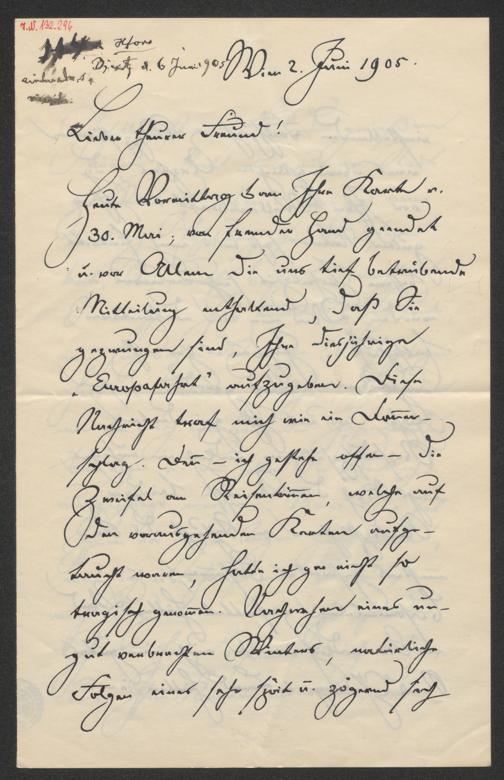 I.N. 132.296
Dienstg d. 6 Juni 1905
Wien 2. Juni 1905.
Lieber theurer Freund!
Heute Vormittag kam Ihre Karte v.
30. Mai, von fremder Hand geendet
u. vor Allem die uns tief betrübende
Mitteilung enthaltend, daß Sie
gezwungen sind, Ihre diesjährige
„Europafahrt" aufzugeben. Diese
Nachricht traf mich wie ein Donner-
schlag. Denn – ich gestehe offen – die
Zweifel am Reisenkönnen, welche auf
den vorausgehenden Karten aufge-
taucht waren, hatte ich gar nicht so
tragisch genommen. Nachwehen eines un-
gut verbrachten Winters, natürliche
Folgen eines sehr spät u. zögernd sich